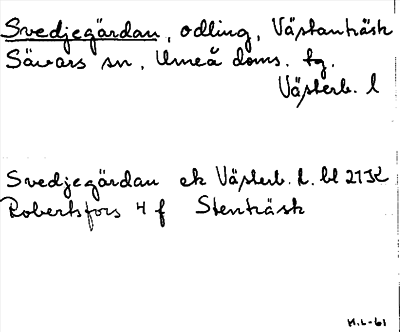 Svedjegärdan, odling, Västanträsk
Sävars sn, Umeå doms. tg.
Västerb. l
Svedjegärdan ek Västerb. l. bl 21 JK
Robertsfors 4 f Stenträsk
H.L-61